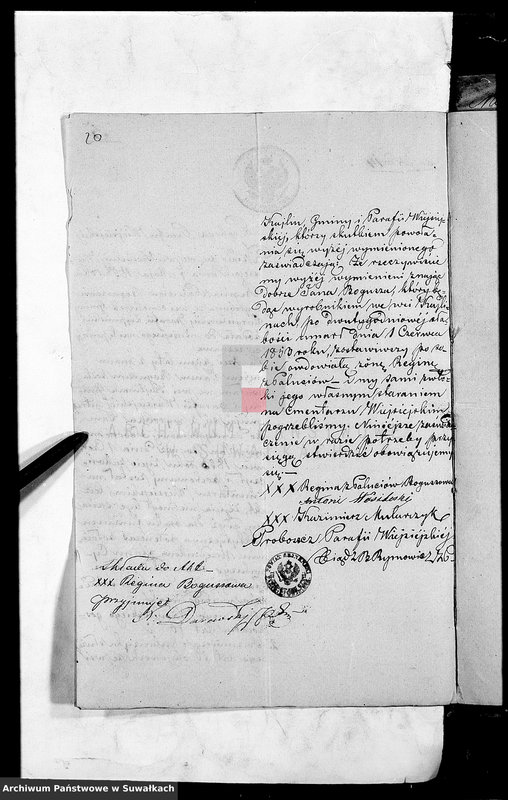 20
Krajlin, Gminy i Parafii Wiejsiej
skiej, którzy skutkiem powoła-
nia się wyżej wymienionego
zaświadczają: Że rzeczywiście
my wyżej wymienieni znając
dobrze Jana Bogusza, który bę-
dąc wyrobnikiem we wsi Krajli-
nach, po dwutygodniowej sła-
bości umarł dnia 1 Czerwca
1853 roku, pozostawiwszy po so-
bie owdowiałą żonę Reginę
z Paluciów – i my sami zwło-
ki jego własnym staraniem
na Cmentarzu Wiejsiejskim
pogrzebliśmy. Niniejsze zaświad-
czenie w razie potrzeby przy-
sięgą stwierdzić obowiązujemy
się. –
XXX Regina z Paluciów Boguszowa
Antoni
XXX Kazimierz Mularczyk
Proboszcz Parafii Wiejsiejskiej
Ksiądz Rymowicz
Składa do Akt –
XXX Regina Boguszowa
przyjmuje
Archiwum Państwowe w Suwałkach